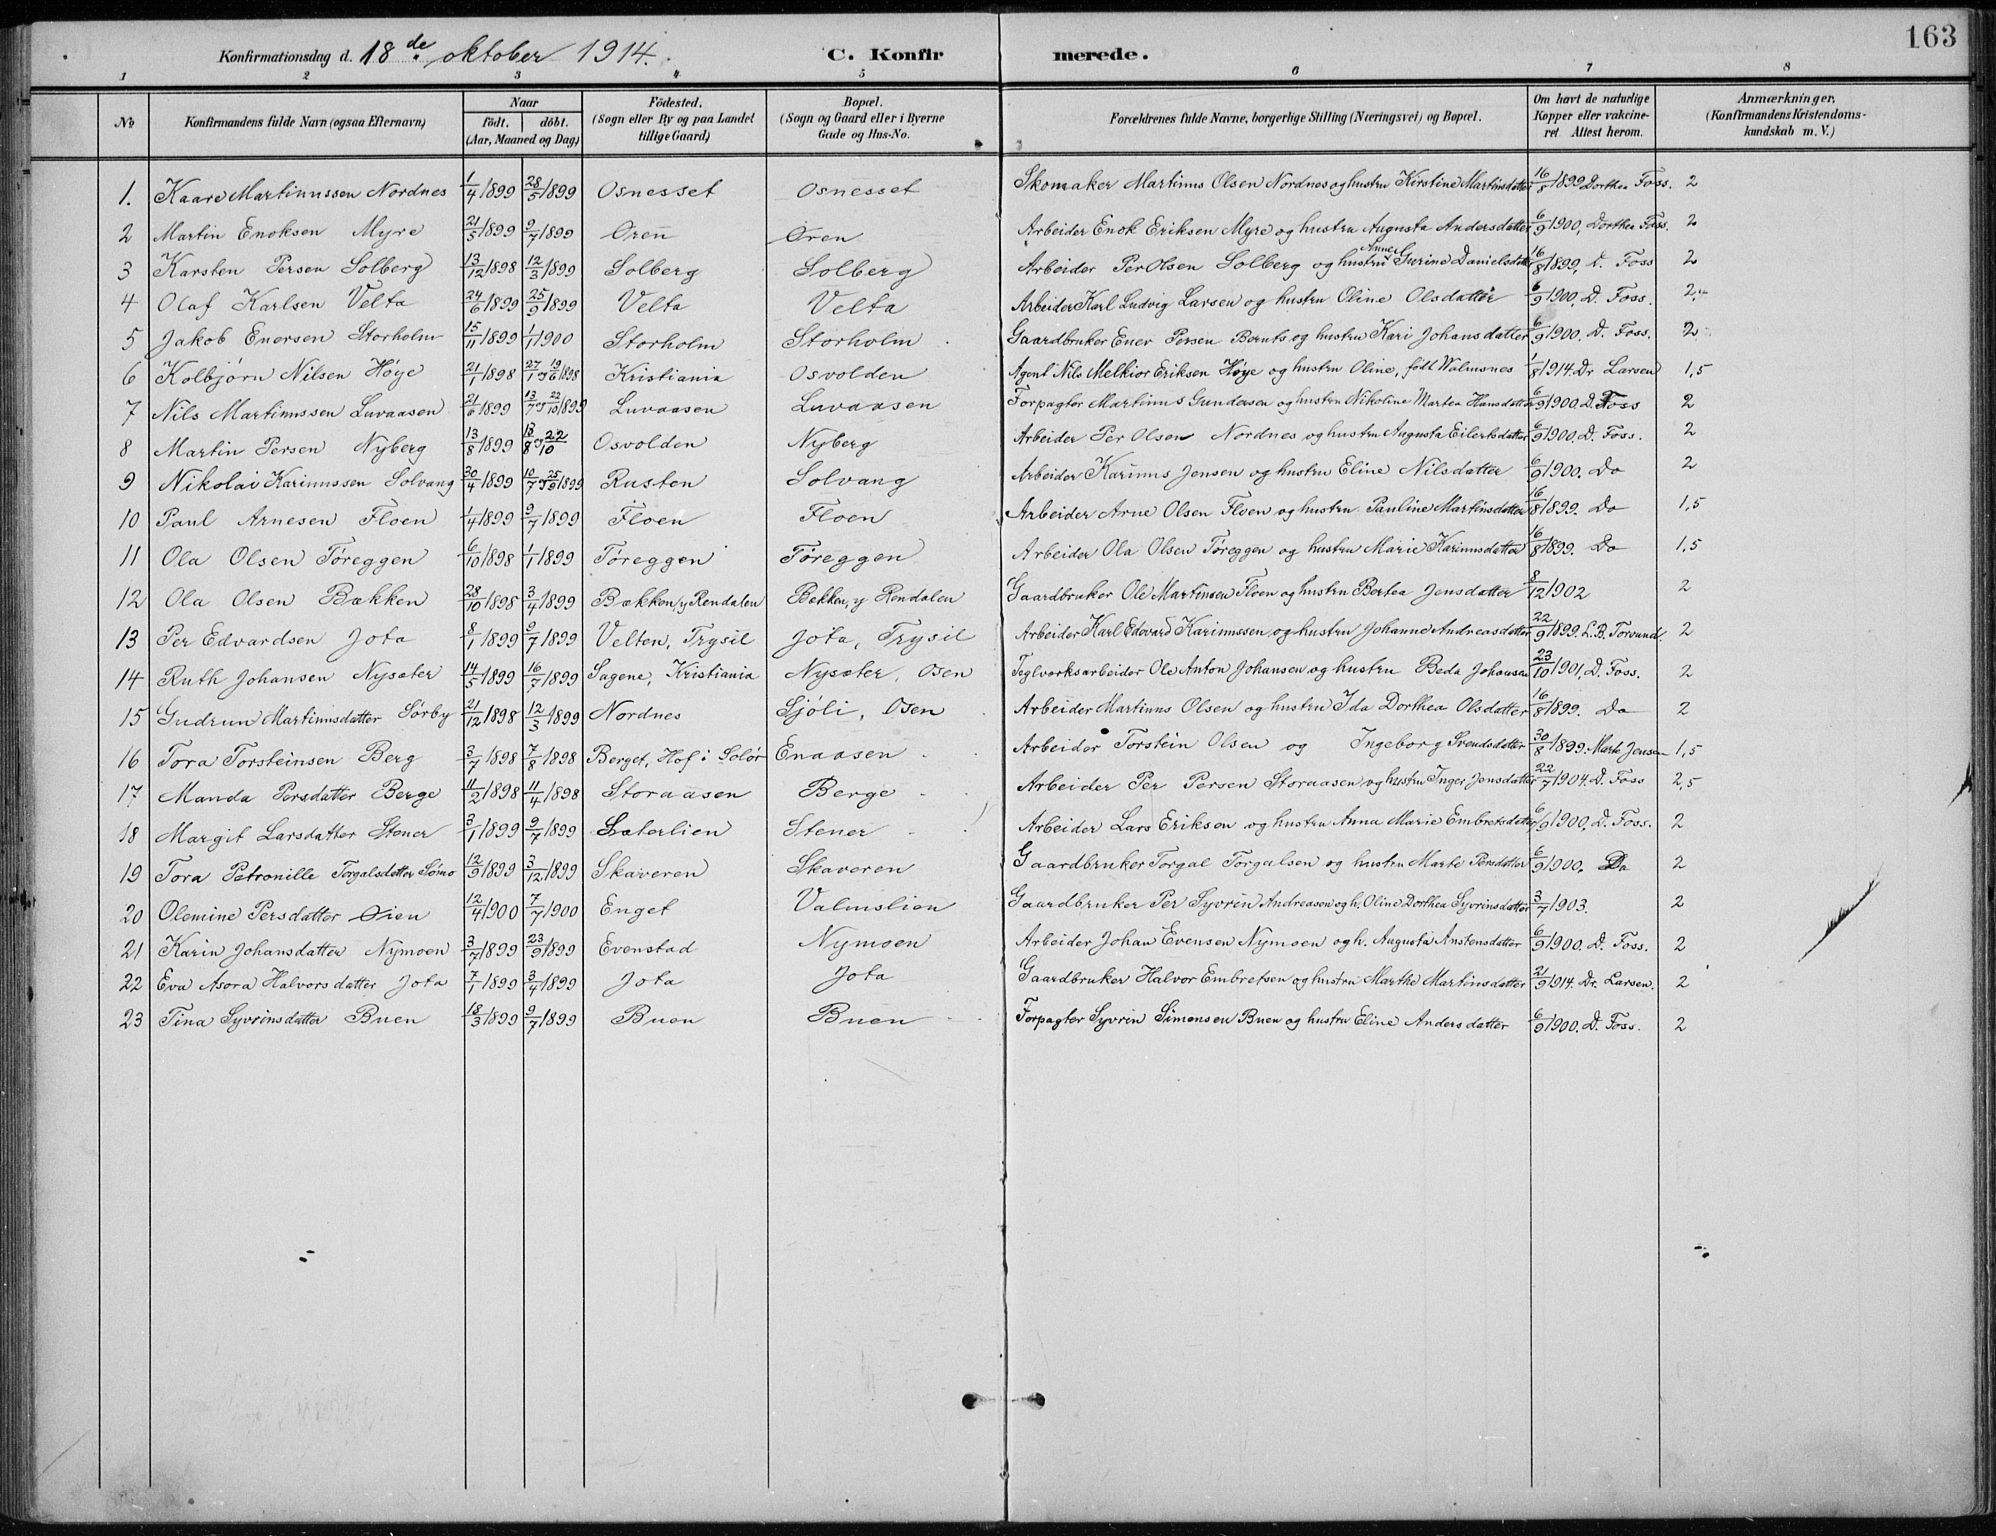 163
Konfirmationsdag d. 18de oktober 1914. C. Konfirmerede.
1 2 3 4 5 6 7 8
No Konfirmandens fulde Navn (ogsaa Efternavn) Naar födt. döbt. (Aar, Maaned og Dag) Födested. (Sogn eller By og paa Landet tillige Gaard) Bopæl. (Sogn og Gaard eller i Byerne Gade og Hus-No. Forældrenes fulde Navne, borgerlige Stilling (Næringsvei) og Bopæl. Om havt de naturlige Kopper eller vakcineret Attest herom. Anmærkninger. (Konfirmandens Kristendomskundskab m. V.)
1. Kaare Martinussen Nordnes 1/4 1899 28/5 1899 Osnesset Osnesset Skomaker Martinus Olsen Nordnes og hustru Kirstine Martinsdatter 16/8 1899 Dorthea Foss. 2
2 Martin Enoksen Myre 21/5 1899 9/7 1899 Øren Øren Arbeider Enok Eriksen Myre og hustru Augusta Andersdatter 6/9 1900, Dorthea Foss. 2
3 Karsten Persen Solberg 13/12 1898 12/3 1899 Solberg Solberg Arbeider Per Olsen Solberg og hustru Anne Gurine Danielsdatter 16/8 1899, D. Foss 2
4 Olaf Karlsen Velta 24/6 1899 25/9 1899 Velta Velta Arbeider Karl Ludvig Larsen og hustru Oline Olsdatter 6/9 1900, D. Foss. 2
5 Jakob Enersen Storholm 15/11 1899 1/1 1900 Storholm Storholm Gaardbruker Ener Persen Bernts og hustru Kari Johansdatter 6/9 1900. D. Foss. 2
6 Kolbjørn Nilsen Høye 21/1 1898 27/1 og 19/6 1898 Kristiania Osvolden Agent Nils Melkior Eriksen Høye og hustru Oline, født Walmsnes 1/8 1914. Dr Larsen 1,5
7 Nils Martinussen Luvaasen 21/6 1899 13/7 og 22/10 1899 Luvaasen Luvaasen Forpagter Martinus Gundersen og hustru Nikoline Martea Hansdatter 6/9 1900. D. Foss 2
8 Martin Persen Nyberg 13/8 1899 13/8 og 22/10 Osvolden Nyberg Arbeider Per Olsen Nordnes og hustru Augusta Eilertsdatter 6/9 1900. D. Foss. 2
9 Nikolai Karinussen Solvang 30/4 1899 10/7 og 25/9 1899 Rusten Solvang Arbeider Karinus Jensen og hustru Eline Nilsdatter 6/9 1900. Do 2
10 Paul Arnesen Floen 1/4 1899 9/7 1899 Floen Floen Arbeider Arne Olsen Floen og hustru Pauline Martinsdatter 16/8 1899. Do 1,5
11 Ola Olsen Tøreggen 6/10 1898 1/1 1899 Tøreggen Tøreggen Arbeider Ola Olsen Tøreggen og hustru Marie Karinusdatter 16/8 1899. Do 1,5
12 Ola Olsen Bækken 28/10 1898 3/4 1899 Bækken, y Rendalen Bekken, y Rendalen Gaardbruker Ole Martinsen Floen og hustru Bertea Jensdatter 8/12 1902 2
13 Per Edvardsen Jota 8/1 1899 9/7 1899 Velten, Trysil Jota, Trysil Arbeider Karl Edevard Karinussen og hustru Johanne Andreasdatter 22/9 1899. L.B. Torsund 2
14 Ruth Johansen Nysæter 14/5 1899 16/7 1899 Sagene, Kristiania Nysæter, Osen Teglverksarbeider Ole Anton Johansen og hustru Beda Johansen 23/10 1901, D. Foss. 2
15 Gudrun Martinusdatter Sørby 21/12 1898 12/3 1899 Nordnes Sjöli, Osen Arbeider Martinus Olsen og hustru Ida Dorthea Olsdatter 16/8 1899. Do 2
16 Tora Torsteinsen Berg 3/7 1898 7/8 1898 Berget, Hof i Solör Enaasen Arbeider Torstein Olsen og Ingeborg Svendsdatter 30/8 1899. Marte Jensen 1,5
17 Manda Persdatter Berge 11/2 1898 11/4 1898 Storaasen Berge Arbeider Per Persen Storaasen og hustru Inger Jensdatter 22/7 1904. D. Foss 2,5
18 Margit Larsdatter Stener 3/1 1899 9/7 1899 Sæterlien Stener Arbeider Lars Eriksen og hustru Anna Marie Embretsdatter 6/9 1900, D. Foss. 2
19 Tora Petronille Torgalsdatter Sömo 12/9 1899 3/12 1899 Skaveren Skaveren Gaardbruker Torgal Torgalsen og hustru Marte Persdatter 6/9 1900. Do 2
20 Olemine Persdatter Øien 12/4 1900 7/7 1900 Enget Valmslien Gaardbruker Per Syvrin Andreasen og h. Oline Dorthea Syvrinsdatter 3/7 1903. 2
21 Karin Johansdatter Nymoen 3/7 1899 23/9 1899 Evenstad Nymoen Arbeider Johan Evensen Nymoen og h. Augusta Anstensdatter 6/9 1900. D. Foss. 2
22 Eva Asora Halvorsdatter Jota 7/1 1899 3/4 1899 Jota Jota Gaardbruker Halvor Embretsen og hustru Marthe Martinsdatter 21/9 1914. Dr. Larsen. 2
23 Tina Syvrinsdatter Buen 18/3 1899 9/7 1899 Buen Buen Forpagter Syvrin Simensen Buen og hustru Eline Andersdatter 6/9 1900. D. Foss. 2